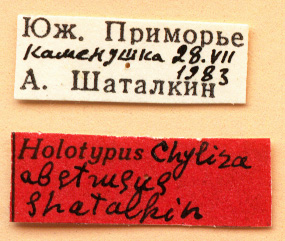 Юж. Приморье
Каменушка 28.VII
1983
А. Шаталкин
Holotypus Chyliza
abstrusus
Shatalkin